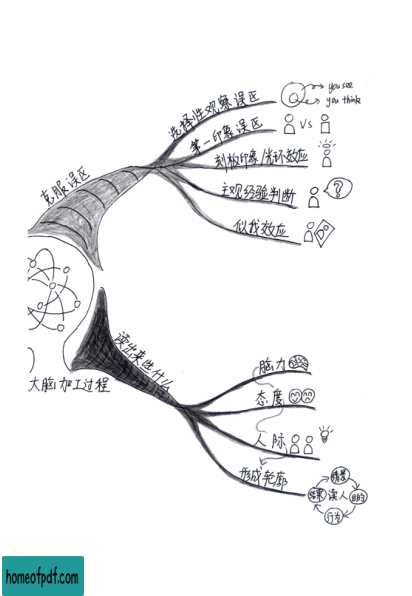 选择性观察误区
you see
you think
第一印象误区
VS
刻板印象/光环效应
克服误区
主观经验判断
?
似我效应
大脑加工过程
读出来些什么
脑力
态度
人际
形成轮廓
情景
结果 读人 目的
行为
homeofpdf.com